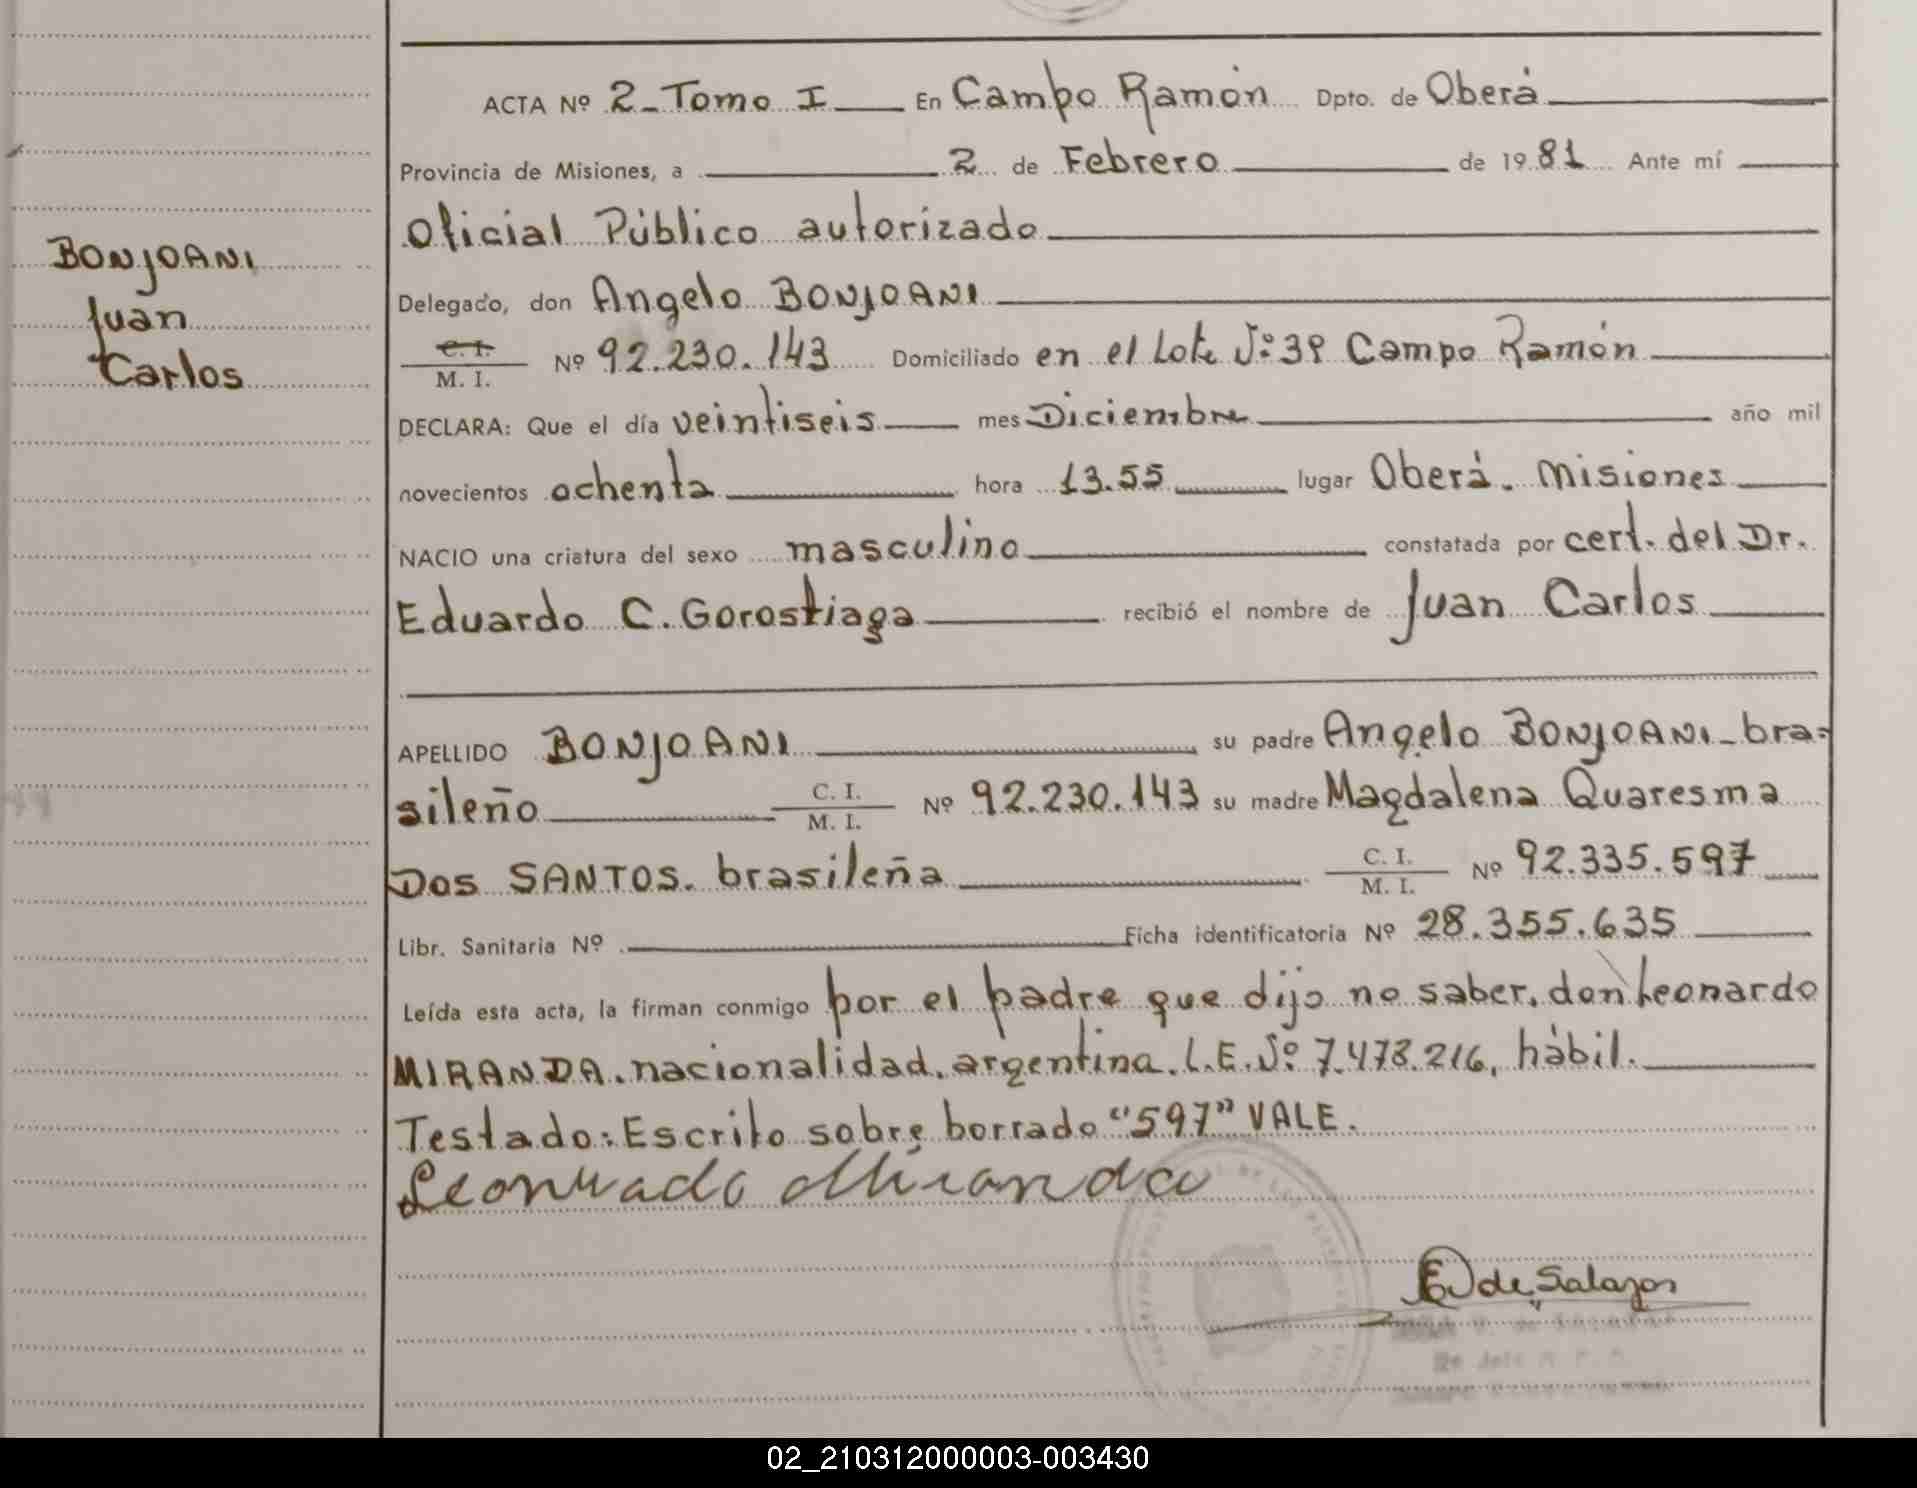 ACTA Nº 2 - Tomo I En Campo Ramón Dpto. de Oberá
Provincia de Misiones, a 2 de Febrero de 1981 Ante mí
Oficial Público autorizado
BONJOANI
Juan
Carlos
Delegado, don Angelo BONJOANI
C. I.
M. I. Nº 92.230.143 Domiciliado en el Lote Nº 39 Campo Ramón
DECLARA: Que el día veintiseis mes Diciembre año mil
novecientos ochenta hora 13.55 lugar Oberá. Misiones
NACIO una criatura del sexo masculino constatada por cert. del Dr.
Eduardo C. Gorostiaga recibió el nombre de Juan Carlos
APELLIDO BONJOANI su padre Angelo BONJOANI - bra=
sileño C. I. M. I. Nº 92.230.143 su madre Magdalena Quaresma
Dos SANTOS. brasileña C. I. M. I. Nº 92.335.597
Libr. Sanitaria Nº Ficha identificatoria Nº 28.355.635
Leída esta acta, la firman conmigo por el padre que dijo no saber, don Leonardo
MIRANDA. nacionalidad. argentina. L.E. Nº 7.473.216, hábil.
Testado: Escrito sobre borrado "597" VALE.
Leonardo Miranda
E de Salazar
02_210312000003-003430